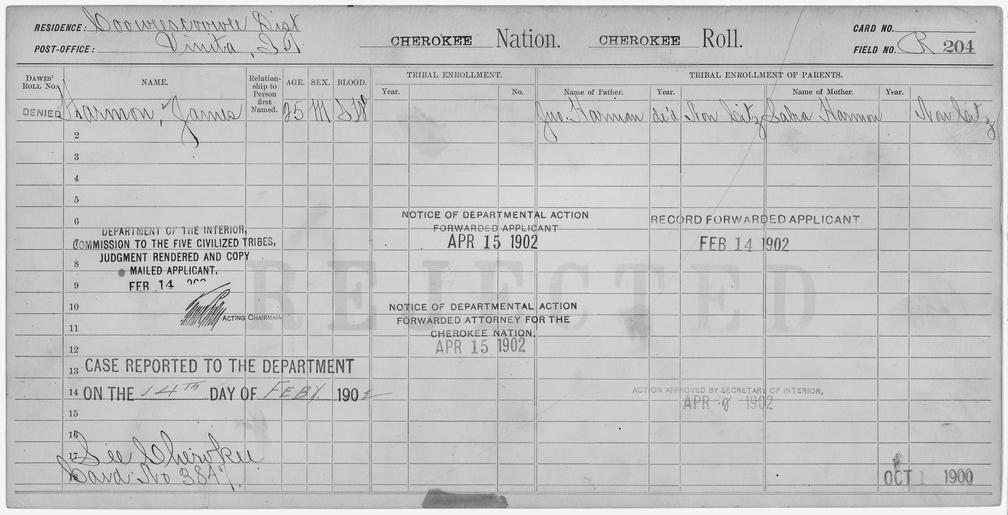 RESIDENCE: Coowescoowee Dist
POST-OFFICE: Vinita, I.T.
CHEROKEE Nation. CHEROKEE Roll.
CARD NO.
FIELD NO. R 204
DAWES' ROLL NO. NAME. Relationship to Person first Named. AGE. SEX. BLOOD. TRIBAL ENROLLMENT. Year. No. TRIBAL ENROLLMENT OF PARENTS. Name of Father. Year. Name of Mother. Year.
DENIED Harmon, James 25 M I.W. Jno. Harman de'd Non Citz Sabra Harmon Non Citz
2
3
4
5
6
8
9
10
11
12
13
14
15
16
17
DEPARTMENT OF THE INTERIOR,
COMMISSION TO THE FIVE CIVILIZED TRIBES,
JUDGMENT RENDERED AND COPY
MAILED APPLICANT.
FEB 14
ACTING CHAIRMAN.
NOTICE OF DEPARTMENTAL ACTION
FORWARDED APPLICANT
APR 15 1902
RECORD FORWARDED APPLICANT.
FEB 14 1902
REJECTED
NOTICE OF DEPARTMENTAL ACTION
FORWARDED ATTORNEY FOR THE
CHEROKEE NATION.
APR 15 1902
CASE REPORTED TO THE DEPARTMENT
ON THE 14TH DAY OF FEBY 1902
ACTION APPROVED BY SECRETARY OF INTERIOR.
APR 8 1902
See Cherokee
Card No 384
OCT 1 1900